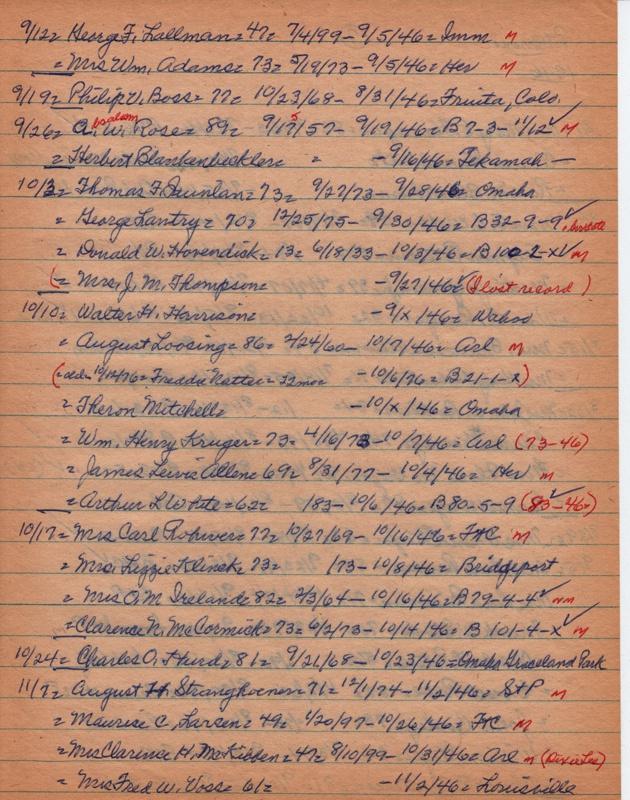 9/12= George F. Lallman= 47= 7/4/99- 9/5/46= Imm M
= Mrs Wm. Adams= 73= 5/19/73- 9/5/46= Her M
9/19= Philip V. Boss= 77= 10/23/68- 8/31/46= Fruita, Colo.
9/26= A.bsalom W. Rose= 89= 9/17/57- 9/19/46= B7-3-11/12 ✓ M
= Herbert Blankenbeckler= = -9/16/46= Tekamah-
10/3= Thomas F. Quinlan= 73= 9/27/73- 9/28/46= Omaha
= George Lantry= 70= 12/25/75- 9/30/46= B32-9-9 ✓
= Donald W. Hovendick= 13= 6/18/33- 10/3/46= B100-2-X ✓ M
(= Mrs. J. M. Thompson= -9/27/46= ✓ (I lost record)
10/10= Walter H. Harrison= -9/X/46= Wahoo
= August Loosing= 86= 2/24/60- 10/7/46= Arl M
10/14/76= Freddie Natter= 12mo= -10/6/76= B21-1-X)
= Theron Mitchell= -10/X/46= Omaha
= Wm. Henry Kruger= 73= 4/16/73-10/7/46= Arl (73-46)
= James Lewis Allen= 69= 8/31/77- 10/4/46= Her M
= Arthur L White= 62= /83- 10/6/46= B80-5-9 ✓ (83-46=)
10/17= Mrs Carl Rohwer= 77= 10/27/69- 10/16/46= FtC M
= Mrs. Lizzie Klinck= 73= /73- 10/8/46= Bridgeport
= Mrs O. M Ireland= 82= 2/3/64- 10/16/46= B79-4-4 ✓ nm
= Clarence N. McCormick= 73= 6/2/73- 10/14/46= B 101-4-X ✓ M
10/24= Charles O. Hurd= 81= 9/21/68- 10/23/46= Omaha Graceland Park
11/7= August H. Stranghoener= 71= 12/1/74- 11/2/46= StP M
= Maurice C. Larsen= 49= 4/20/97- 10/26/46= FtC M
= Mrs Clarence H. McKibben= 47= 8/10/99- 10/31/46= Arl M (Dixie Lee)
= Mrs Fred W. Voss= 61= -11/2/46= Louisville